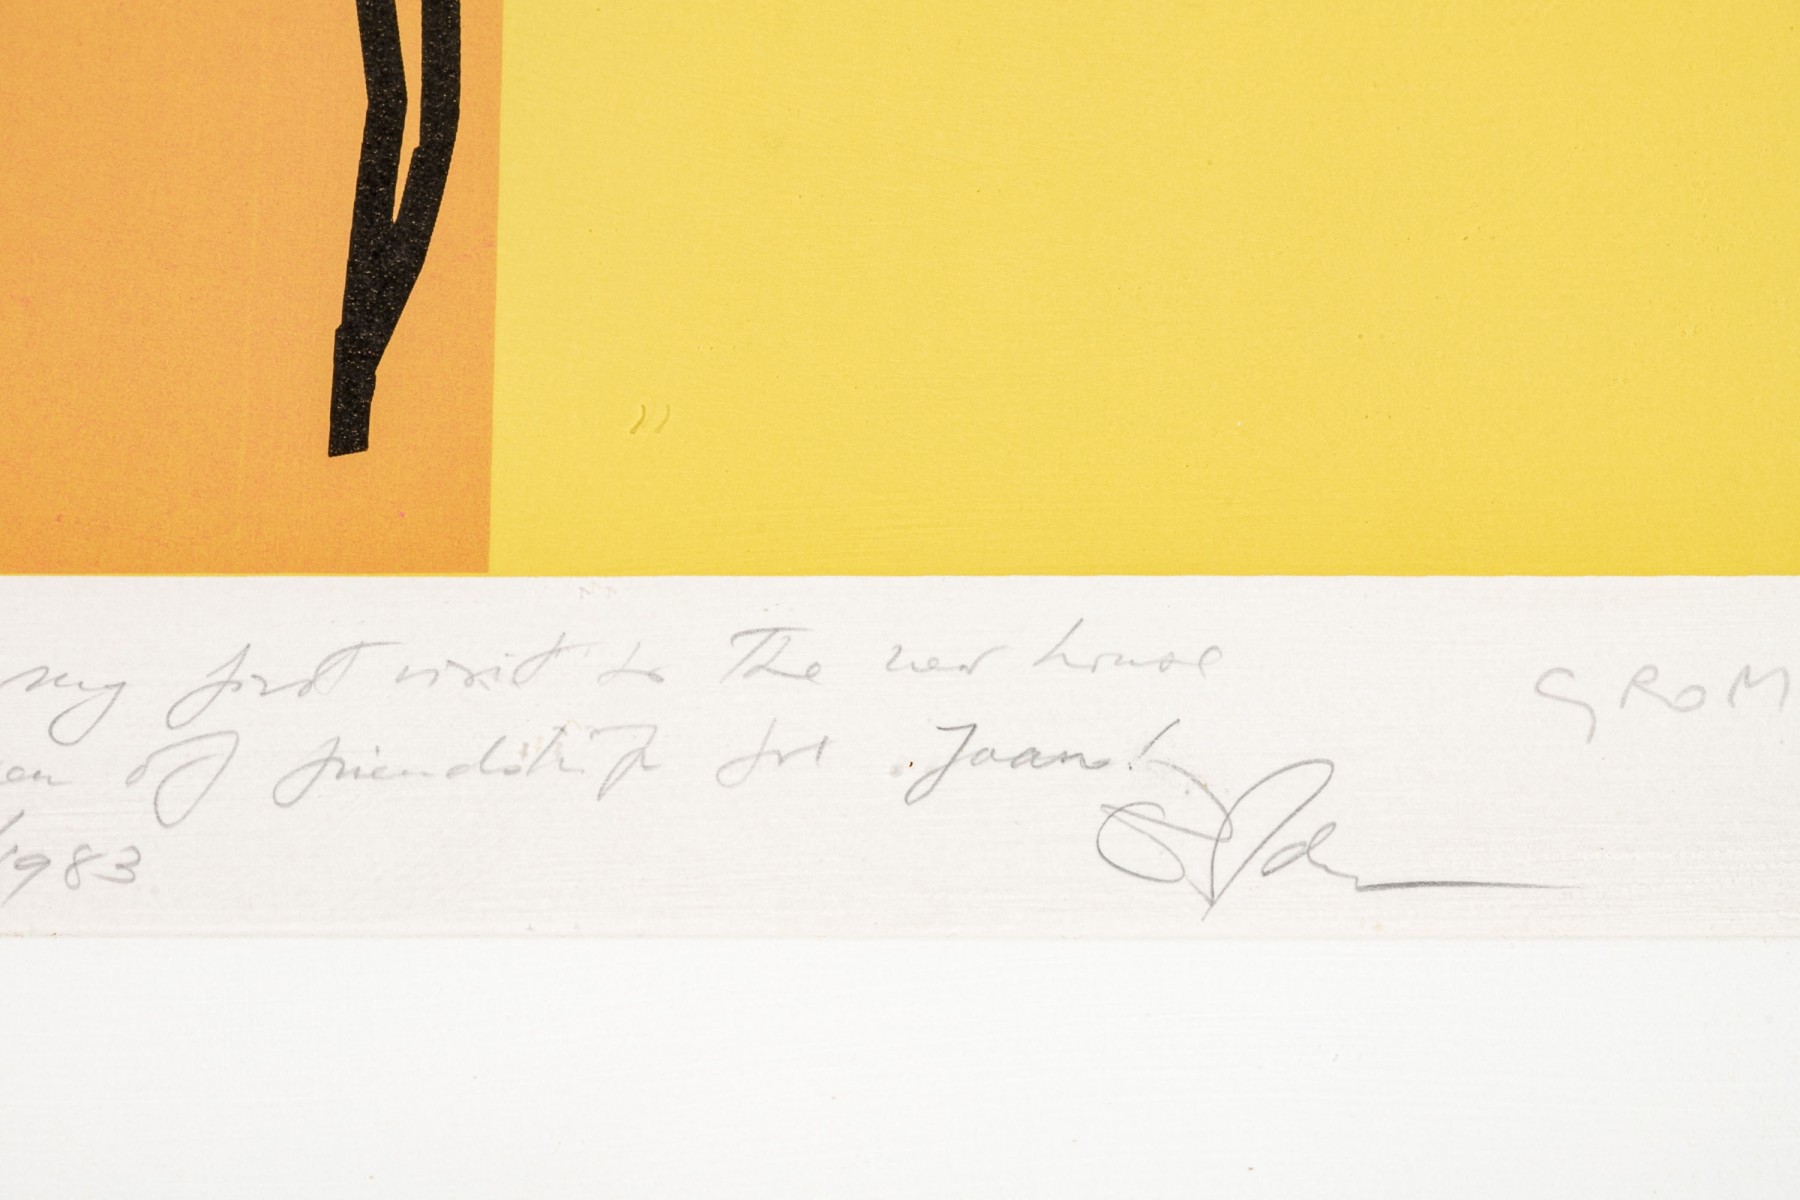 my first visit to The new house
of friendship for Joan!
1983
GROM